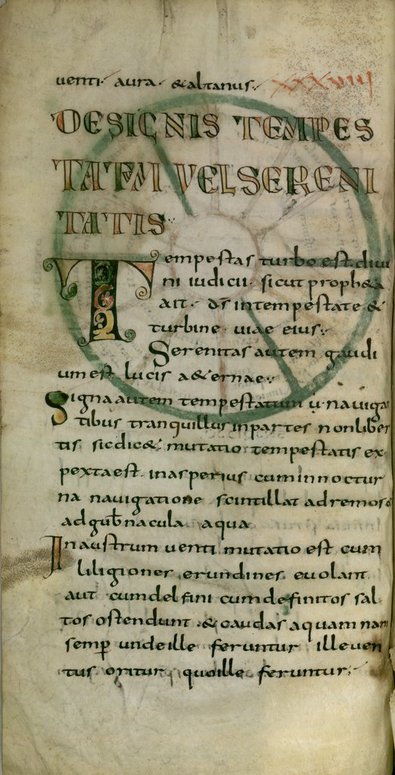 uenti· aura· &altanus· XXXVIII
DE SIGNIS TEMPES
TATEM VEL SERENI
TATIS
Tempestas turbo est· diui
ni iudicii· sicut proph&a
ait· ds in tempestate &
turbine uiae eius·
Serenitas autem gaudi
um est lucis a&ernae·
Signa autem tempestatum u· nauiga
tibus tranquillus in partes non liber
tis sic dic& mutatio tempestatis ex
pexta est· in asperius cum in noctur
na nauigatione scintillat ad remos &
ad gub̄nacula aqua
In austrum uenti mutatio est cum
liligiones erundines euolant
aut cum delfini cum definitos sal
tos ostendunt· & caudas aquam nam
semp̄ unde ille feruntur ille uen
tus oritur quo ille feruntur·